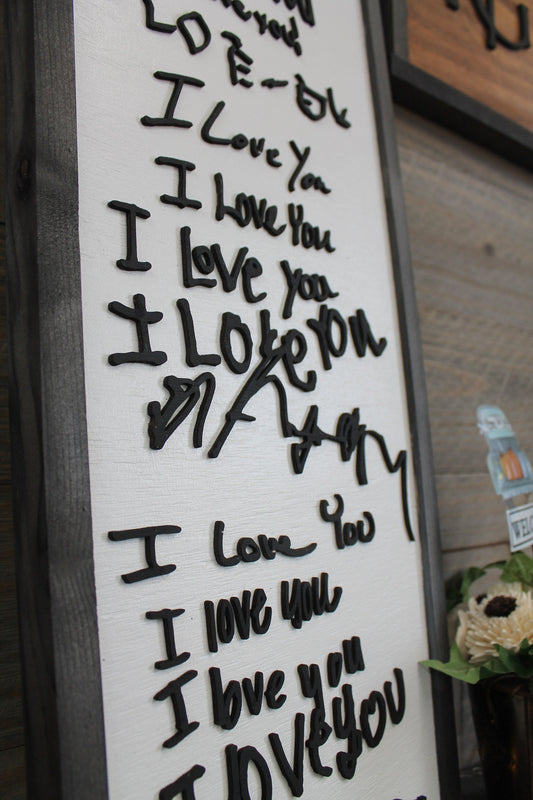 Love you
I Love You
I Love You
I Love you
I Love YOU
I Love You
I love you
I love you
I love you
WELC